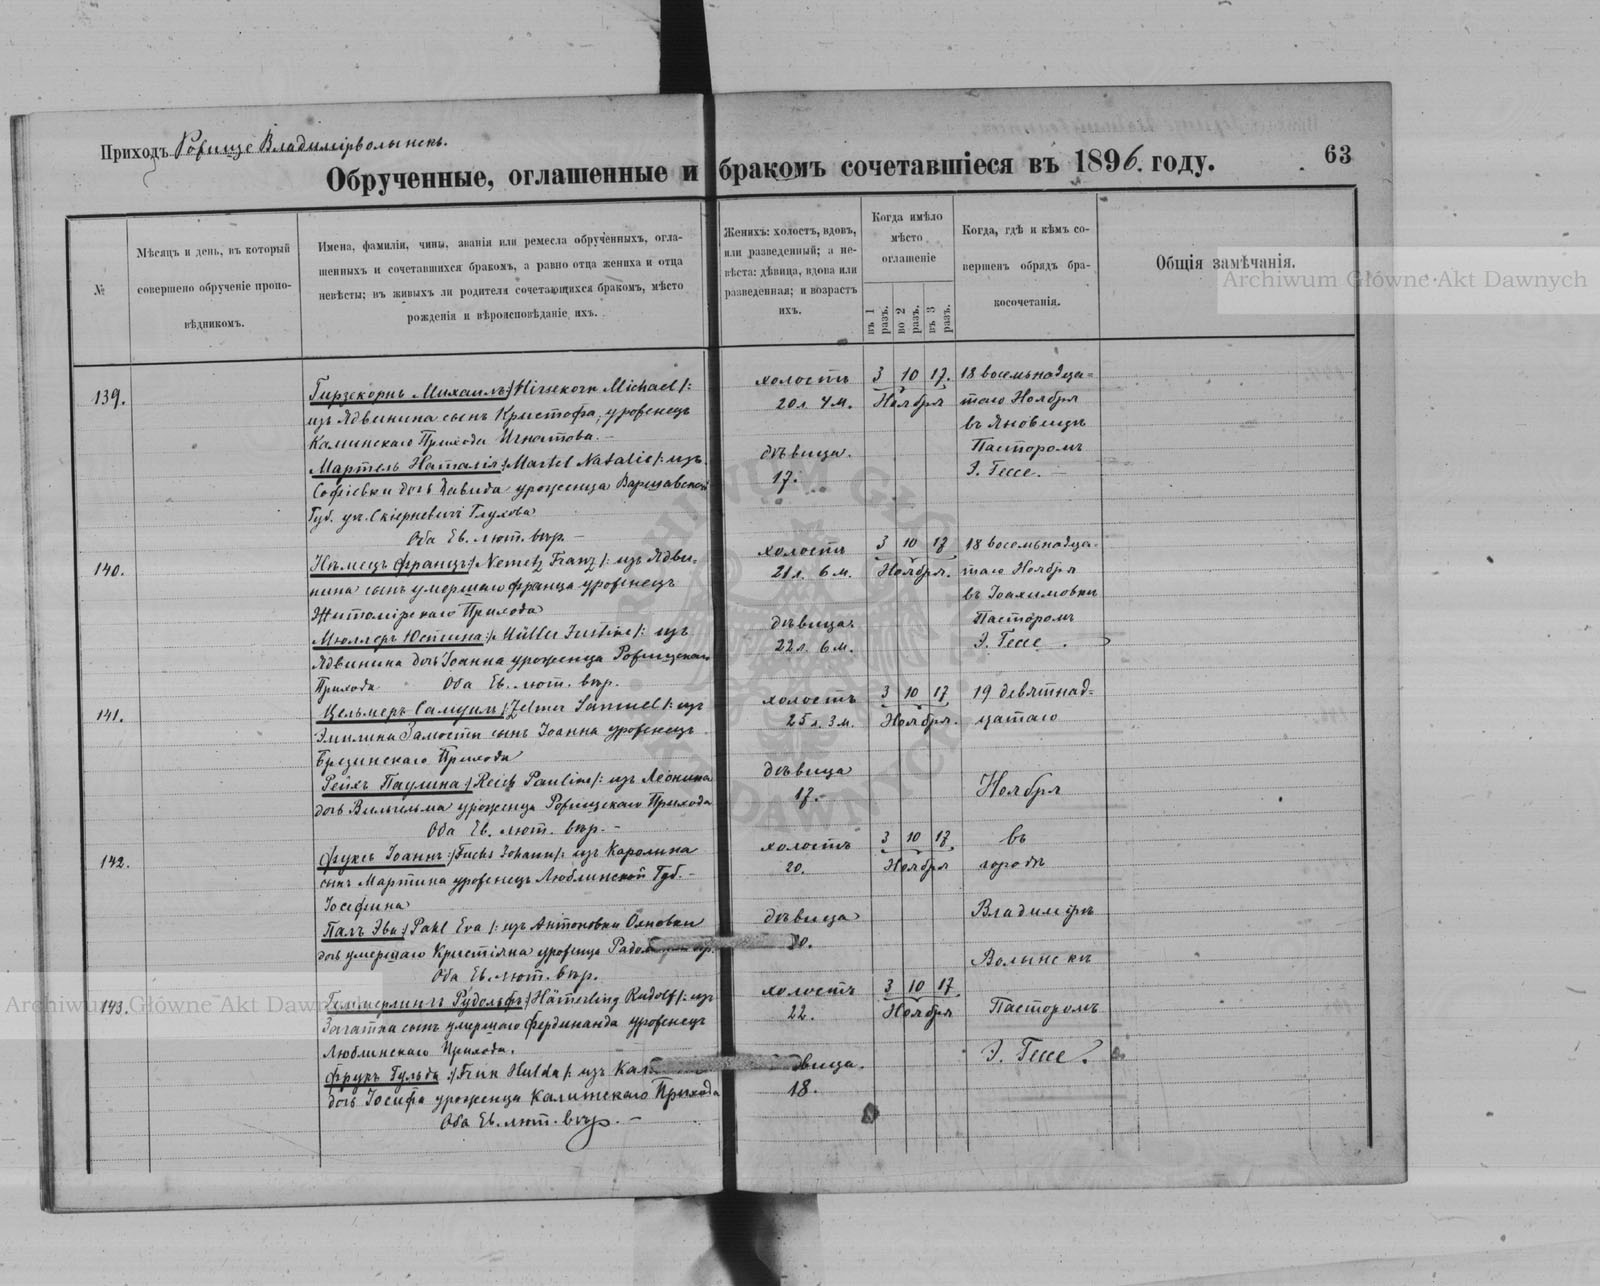 Приходъ Рожище Владимірволынскъ.
Обрученные, оглашенные и бракомъ сочетавшіеся въ 1896. году.
63
№
Мѣсяцъ и день, въ который
совершено обрученіе пропо-
вѣдникомъ.
Имена, фамиліи, чины, званія или ремесла обрученныхъ, огла-
шенныхъ и сочетавшихся бракомъ, а равно отца жениха и отца
невѣсты; въ живыхъ ли родителя сочетающихся бракомъ, мѣсто
рожденія и вѣроисповѣданіе ихъ.
Женихъ: холостъ, вдовъ,
или разведенный; а не-
вѣста: дѣвица, вдова или
разведенная; и возрастъ
ихъ.
Когда имѣло
мѣсто
оглашеніе
въ 1 разъ.
во 2 разъ.
въ 3 разъ.
Когда, гдѣ и кѣмъ со-
вершенъ обрядъ бра-
косочетанія.
Общія замѣчанія.
Archiwum Główne Akt Dawnych
139.
Гирзекорнъ Михаилъ /: Hirsekorn Michael /:
изъ Ядвинина сынъ Кристофа, уроженецъ
Каминскаго Прихода Игнатова. —
Мартель Наталія /: Martel Natalie /: изъ
Софіевки дочь Давида уроженица Варшавской
Губ. уѣ. Скерневичъ Глухова
Оба Ев. лют. вѣр. —
холостъ
20 л. 4 м.
дѣвица.
17.
3 10 17.
Ноября
18 восемьнадца=
таго Ноября
въ Яновицѣ
Пасторомъ
Э. Гессе. —
140.
Нѣмецъ Францъ /: Nemetz Franz /: изъ Ядви-
нина сынъ умершаго Франца уроженецъ
Житомірскаго Прихода
Мюллеръ Юстина /: Müller Justine /: изъ
Ядвинина дочь Іоанна уроженица Рожищскаго
Прихода Оба Ев. лют. вѣр.
холостъ
21 л. 6 м.
дѣвица.
22 л. 6 м.
3 10 17
Ноября.
18 восемьнадца-
таго Ноября
въ Іоахимовки
Пасторомъ
Э. Гессе.
141.
Цельмеръ Самуилъ /: Zelmer Samuel /: изъ
Эмилина Замости сынъ Іоанна уроженецъ
Брезинскаго Прихода
Рейхъ Паулина /: Reich Pauline /: изъ Леонина
дочь Вильгельма уроженица Рожищскаго Прихода
Оба Ев. лют. вѣр. —
холостъ
25 л. 3 м.
дѣвица
17.
3 10 17
Ноября.
19 девятнад=
цатаго
Ноября
въ
городѣ
Владимірѣ
Волынскѣ
Пасторомъ
Э. Гессе.
142.
Фуксъ Іоаннъ /: Fuchs Johann /: изъ Каролина
сынъ Мартина уроженецъ Люблинской Губ. —
Іосефина
Паль Эва /: Pahl Eva /: изъ Антоновки
дочь умершаго Кристіяна уроженица
Оба Ев. лют. вѣр.
холостъ
20.
дѣвица
3 10 17.
Ноября
143.
Геммерлингъ Рудольфъ /: Hämerling Rudolf /: изъ
сынъ умершаго Фердинанда уроженецъ
Люблинскаго Прихода.
Фрукъ Гульда /: Fruk Hulda /: изъ
дочь Іосифа уроженица Калишскаго Прихода
Оба Ев. лют. вѣр. —
холостъ
22.
18.
3 10 17.
Ноября
Archiwum Główne Akt Dawnych
ARCHIWUM GŁÓWNE AKT DAWNYCH